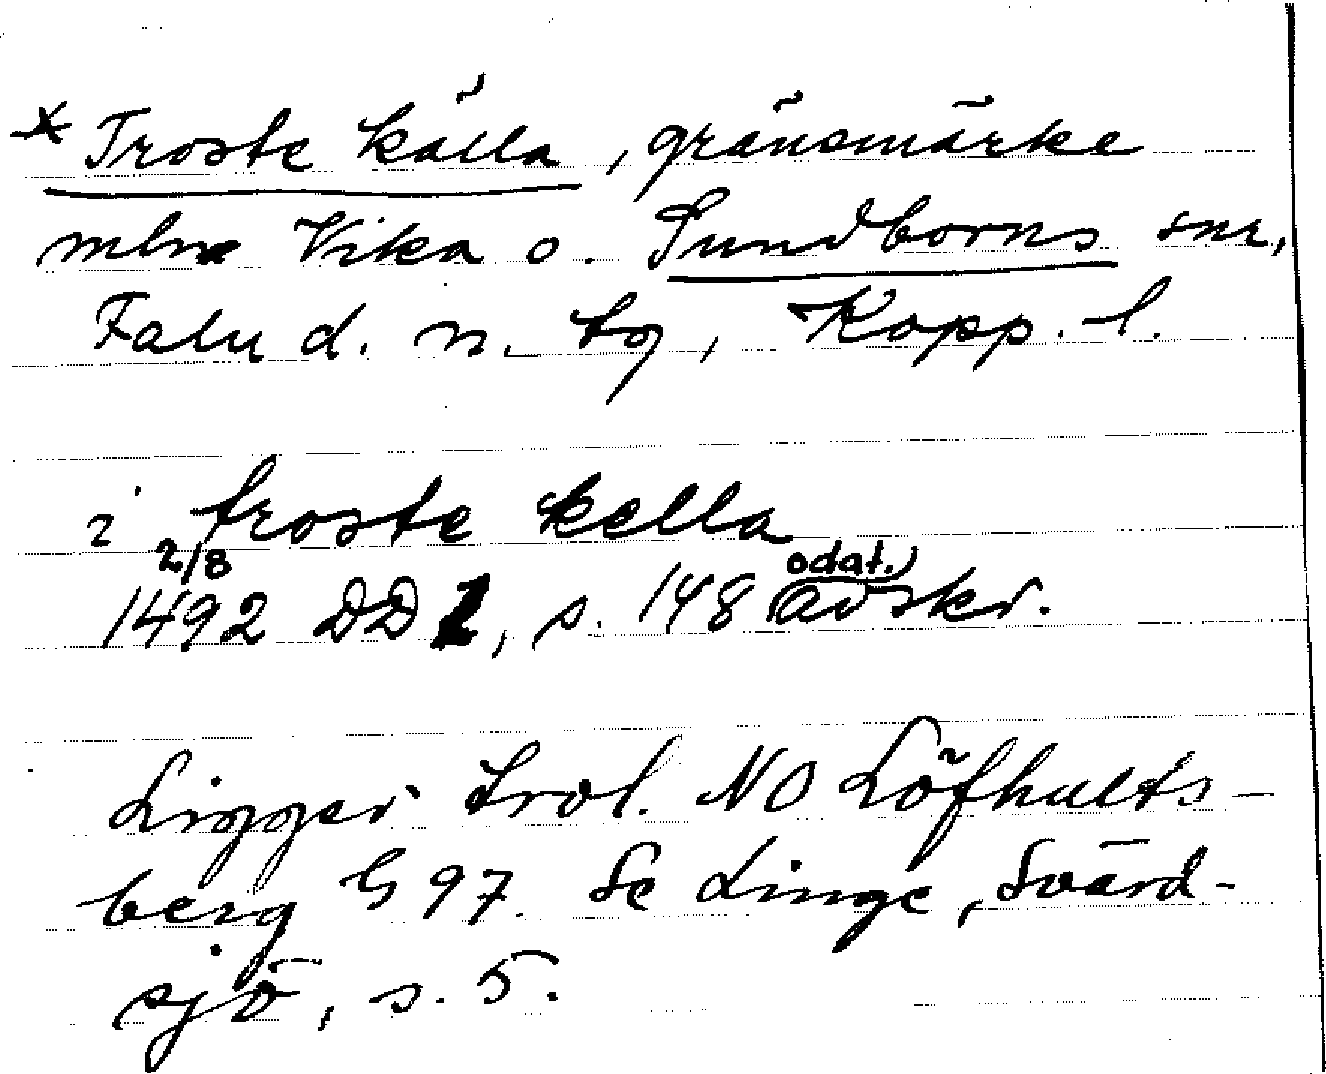 * Troste källa, gränsmärke
mln Vika o. Sundborns snr,
Falu d. n. tg, Kopp. l.
i troste kella
2/8 odat.)
1492 DD 1, s. 148 avskr.
Ligger trol. NO Löfhults-
berg G 97. Se Linge, Svärd-
sjö, s. 5.